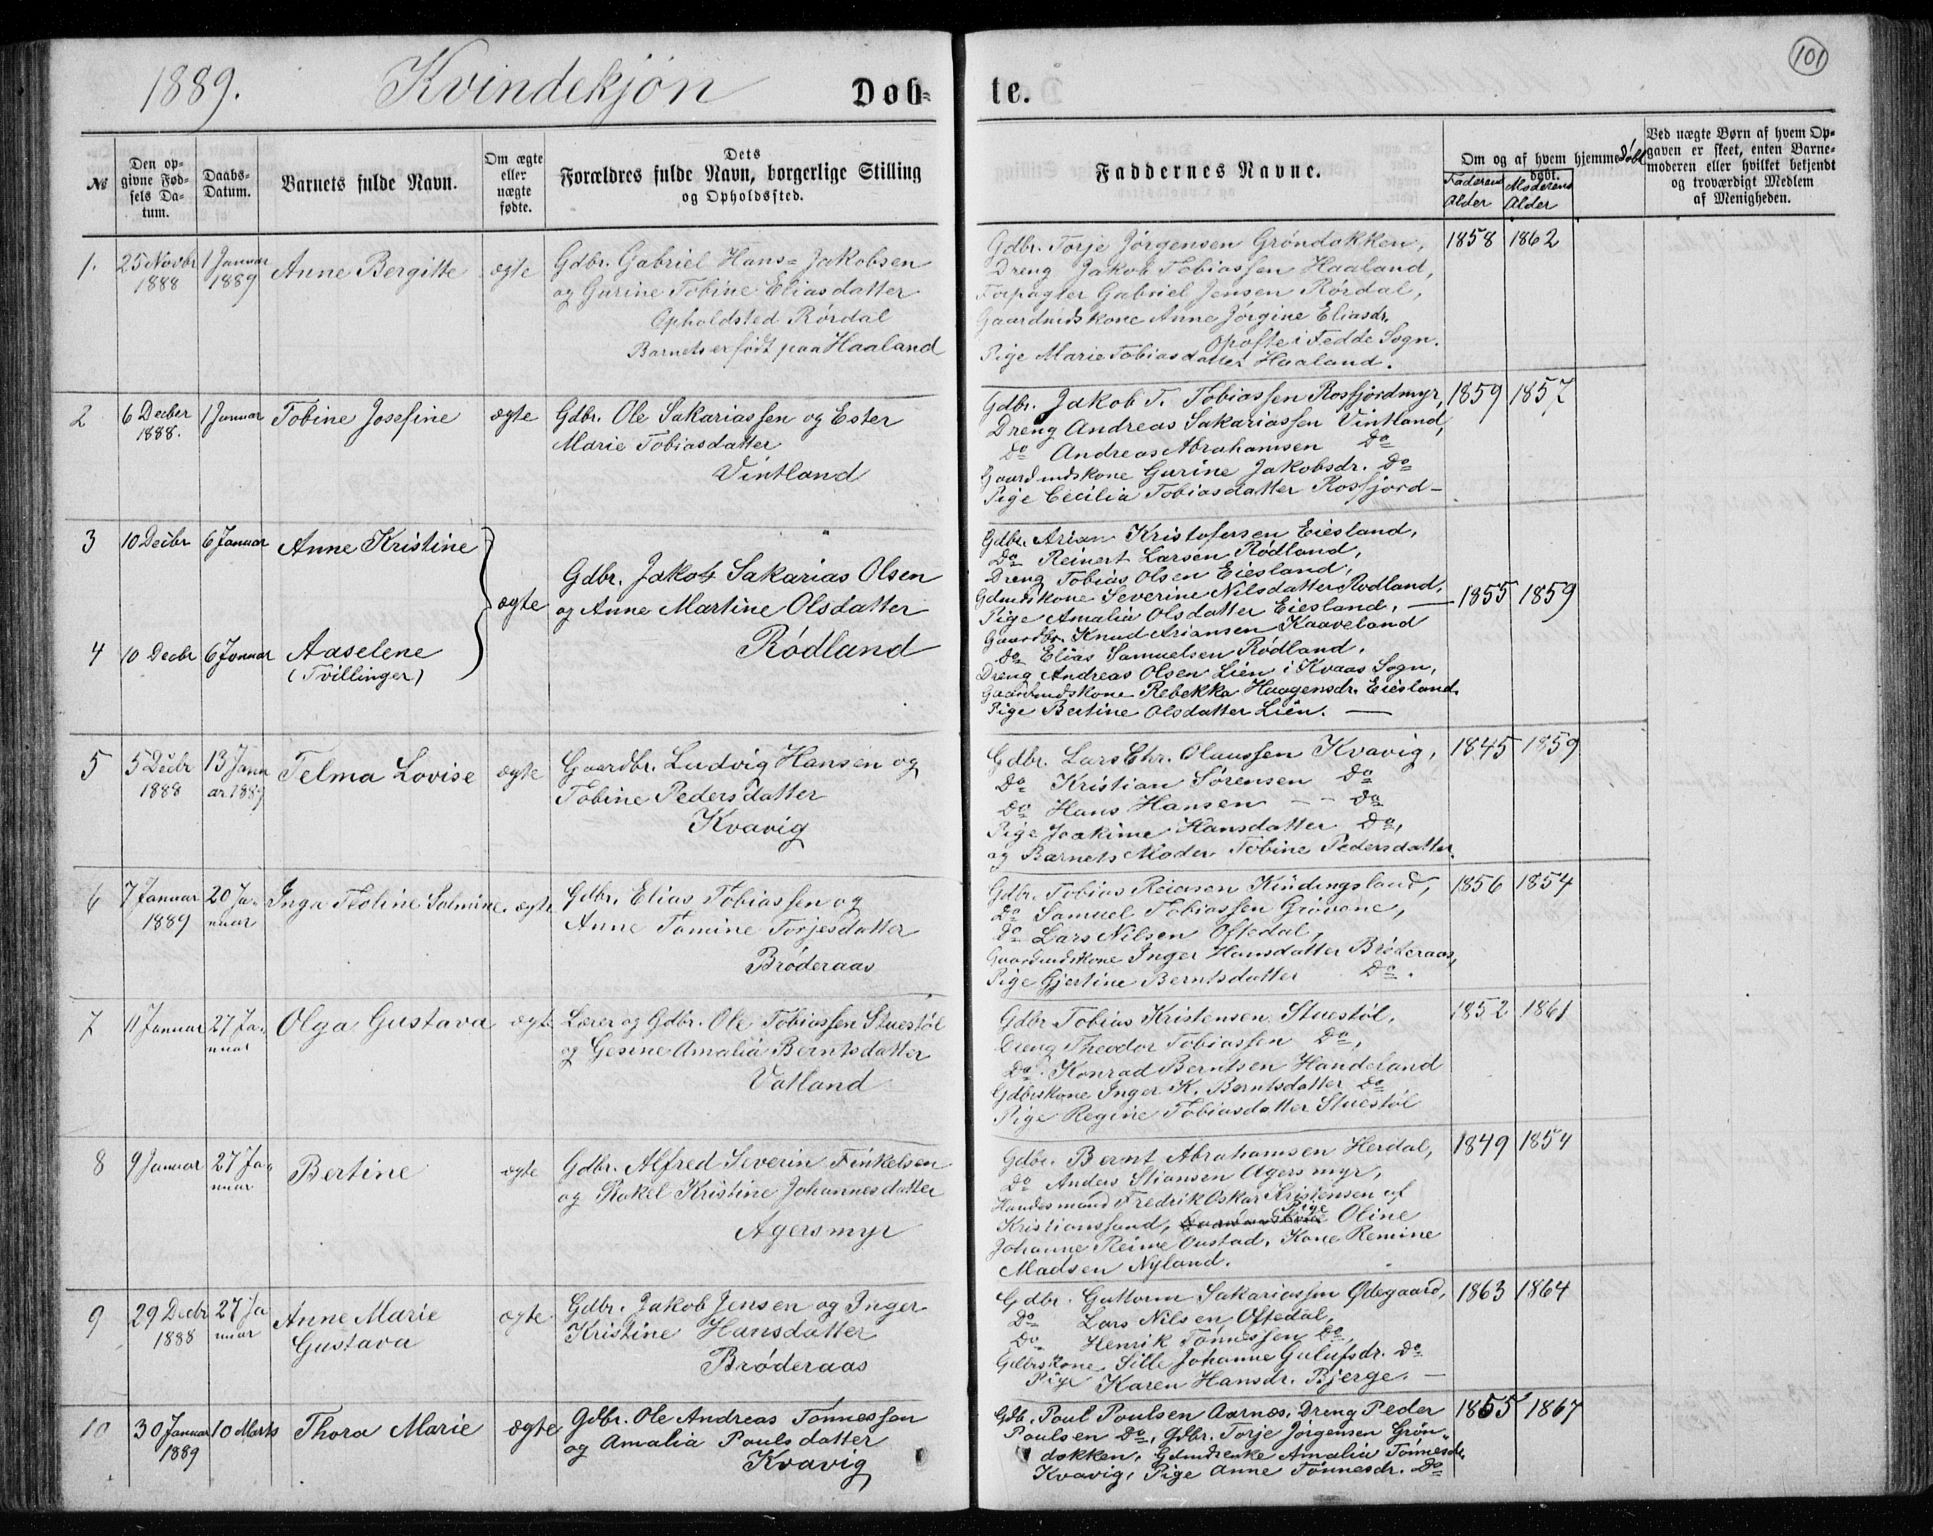 101
1889. Kvindekjøn Døb= te.
№
Den op-
givne Fød-
sels Da-
tum.
Daabs-
Datum.
Barnets fulde Navn.
Om ægte
eller
uægte
fødte.
Dets
Forældres fulde Navn, borgerlige Stilling
og Opholdssted.
Faddernes Navne.
Om og af hvem hjemmedøbt
døbt.
Faderens
Alder
Moderens
Alder
Ved uægte Børn af hvem Op-
gaven er skeet, enten Barne-
moderen eller hvilket bekjendt
og troværdigt Medlem
af Menigheden.
1.
25 Novbr
1888
1 Januar
1889
Anne Bergitte
ægte
Gdbr. Gabriel Hans= Jakobsen
og Gurine Tobine Eliasdatter
Opholdsted Rørdal
Barnet er født paa Haaland
Gdbr. Torje Jørgensen Grøndokken,
Dreng Jakob Tobiassen Haaland,
Forpagter Gabriel Jensen Rørdal,
Gaardmdskone Anne Jørgine Eliasdr.
Opofte i Fedde Sogn.
Pige Marie Tobiasdatter Haaland.
1858 1862
2
6 Decber
1888.
1 Januar
Tobine Josefine
ægte
Gdbr. Ole Sakariassen og Ester
Marie Tobiasdatter
Vintland
Gdbr. Jakob T. Tobiassen Rosfjordmyr,
Dreng Andreas Sakariassen Vintland,
Do Andreas Abrahamsen Do
Gaardmdskone Gurine Jakobsdr. Do
Pige Cecilia Tobiasdatter Rosfjord-
1859 1857
3
10 Decbr
6 Januar
Anne Kristine
4
10 Decbr
6 Januar
Aaselene
(Tvillinger)
ægte
Gdbr. Jakob Sakarias Olsen
og Anne Martine Olsdatter
Rødland
Gdbr. Arian Kristofersen Eiesland,
Do Reinert Larsen Rødland,
Dreng Tobias Olsen Eiesland,
Gdmdskone Severine Nilsdatter Rødland,
Pige Amalia Olsdatter Eiesland, —
Gaardbr. Knud Ariansen Kaaveland
Do Elias Samuelsen Rødland,
Dreng Andreas Olsen Lien i Kvaas Sogn,
Gaardmdskone Rebekka Haagensdr. Eiesland
Pige Bertine Olsdatter Lien. —
1855 1859
5
5 Decbr
1888
13 Janu
ar 1889
Telma Lovise
ægte
Gaardbr. Ludvig Hansen og
Tobine Pedersdatter
Kvavig
Gdbr. Lars Chr. Olaussen Kvavig,
Do Kristian Sørensen Do
Do Hans Hansen - - Do
Pige Joakime Hansdatter Do,
og Barnets Moder Tobine Pedersdatter.
1845 1859
6
7 Januar
1889
20 Ja-
nuar
Inga Teoline Solmine.
ægte
Gdbr. Elias Tobiassen og
Anne Tomine Torjesdatter
Brøderaas
Gdbr. Tobias Reiersen Kindingsland,
Do Samuel Tobiassen Grøvene,
Do Lars Nilsen Oftedal,
Gaardmdskone Inger Hansdatter Brøderaas,
Pige Gjertine Berntsdatter Do.
1856 1854
7
11 Januar
27 Ja-
nuar
Olga Gustava
ægte
Lærer og Gdbr. Ole Tobiassen Stuestøl
og Gesine Amalia Berntsdatter
Vatland
Gdbr Tobias Kristensen Stuestøl,
Dreng Theodor Tobiassen Do,
Do. Konrad Berntsen Handeland
Gdbrskone Inger K. Berntsdatter Do
Pige Regine Tobiasdatter Stuestøl
1852 1861
8
9 Januar
27 Ja-
nuar
Bertine
ægte
Gdbr. Alfred Severin Finkelsen
og Rakel Kristine Johannesdatter
Agersmyr
Gdbr. Bernt Abrahamsen Herdal,
Do Anders Stiansen Agersmyr,
Handesmand Fredrik Oskar Kristensen af
Kristianssand, Pige Oline
Johanne Reime Oustad, Kone Remine
Madsen Nyland.
1849 1854
9
29 Decbr
1888
27 Ja
nuar
Anne Marie
Gustava
ægte
Gdbr. Jakob Jensen og Inger
Kristine Hansdatter
Brøderaas
Gdbr. Guttorm Sakariassen Ødegaard,
Do Lars Nilsen Oftedal,
Do Henrik Tønnessen Do,
Gdbrskone Sille Johanne Gulufsdr. Do
Pige Karen Hansdr. Bjerge. —
1863 1864
10
30 Januar
1889
10 Marts
Thora Marie
ægte
Gdbr. Ole Andreas Tønnessen
og Amalia Poulsdatter
Kvavig
Gdb. Poul Poulsen Aarnes, Dreng Peder
Poulsen Do, Gdbr. Torje Jørgensen Grøn-
dokken, Gdmdsenke Amalia Tønnesdr.
Kvavig, Pige Anne Tønnesdr. Do
1855 1867